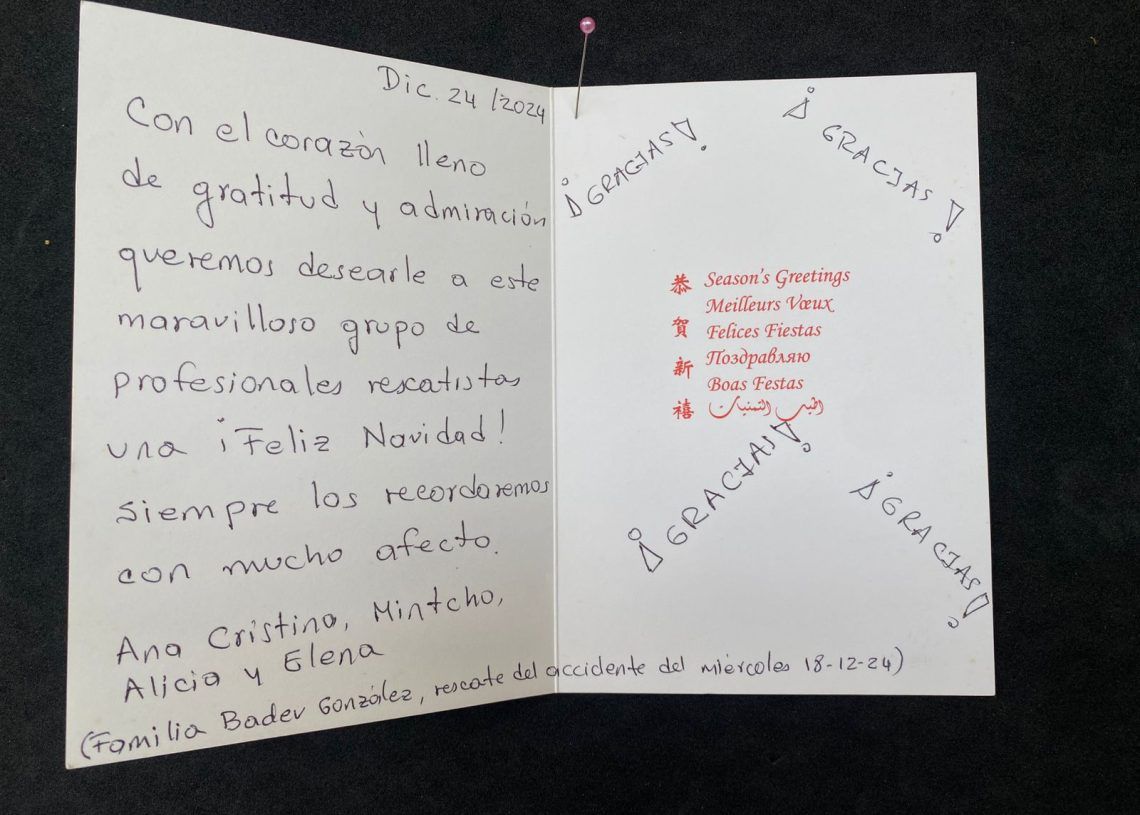 Dic. 24 /2024
Con el corazón lleno
de gratitud y admiración
queremos desearle a este
maravilloso grupo de
profesionales rescatistas
una ¡Feliz Navidad!
siempre los recordaremos
con mucho afecto.
Ana Cristina, Mintcho,
Alicia y Elena
(Familia Badev González, rescate del accidente del miércoles 18-12-24)
¡GRACIAS!
¡GRACIAS!
恭賀新禧
Season's Greetings
Meilleurs Vœux
Felices Fiestas
Поздравляю
Boas Festas
اطيب التمنيات
¡GRACIAS!
¡GRACIAS!